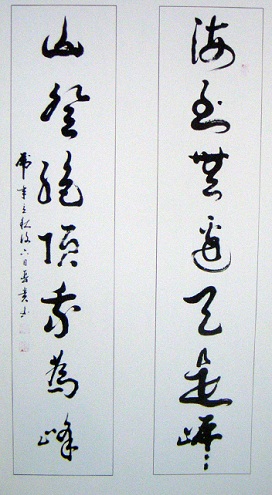 海到無邊天是岸
山登絕頂我為峰